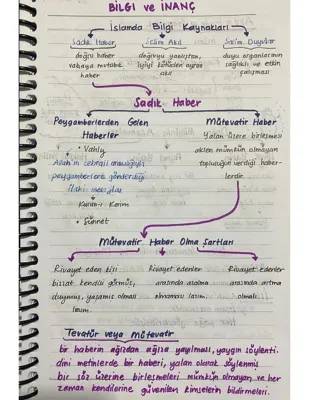 BİLGİ VE İNANÇ
İslamda Bilgi Kaynakları
Sadık Haber
doğru haber
vahaya mutabık
haber
Selim Akıl
doğruyu yanlıştan,
iyiyi kötüden ayıran
akıl
Salim Duyular
duyu organlarının
sağlıklı ve etkin
çalışması
Sadık Haber
Peygamberlerden Gelen
Haberler
• Vahiy
Allah'ın cebrail aracılığıyla
peygamberlere gönderdiği
ilahi mesajlar
Kuran-ı Kerim
• Sünnet
Mütevatir Haber
Yalan üzere birleşmesi
aklen mümkün olmayan
topluluğun verdiği haber-
lerdir.
Mütevatir Haber Olma Şartları
Rivayet eden kişi
bizzat kendisi görmüş,
duymuş, yaşamış olması
lazım.
Rivayet edenler
arasında azalma
olmaması lazım.
Rivayet edenler
arasında artma
olmalı.
Tevatür veya Mütevatir
bir haberin ağızdan ağıza yayılması, yaygın söylenti.
dini metinlerde bir haberi, yalan olarak söylenmiş
bir söz üzerine birleşmeleri mümkün olmayan ve her
zaman kendilerine güvenilen kimselerin bildirmeleri.